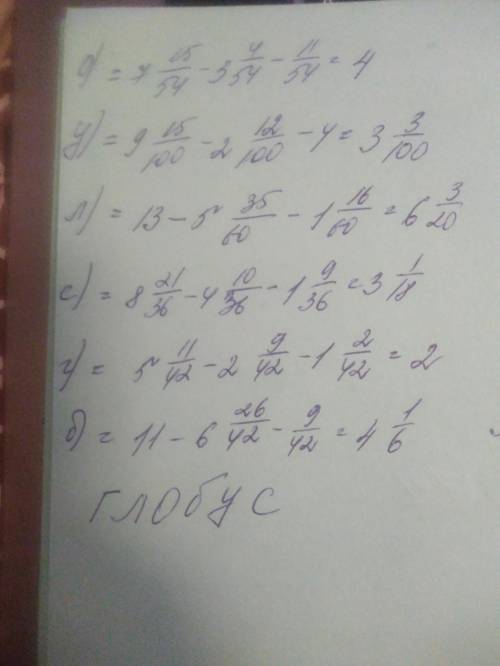 о) = 7 15/54 - 3 4/54 - 11/54 = 4
у) = 9 15/100 - 2 12/100 - 4 = 3 3/100
л) = 13 - 5 35/60 - 1 16/60 = 6 3/20
с) = 8 21/36 - 4 10/36 - 1 9/36 = 3 1/18
г) = 5 11/42 - 2 9/42 - 1 2/42 = 2
б) = 11 - 6 26/42 - 9/42 = 4 1/6
ГЛОБУС